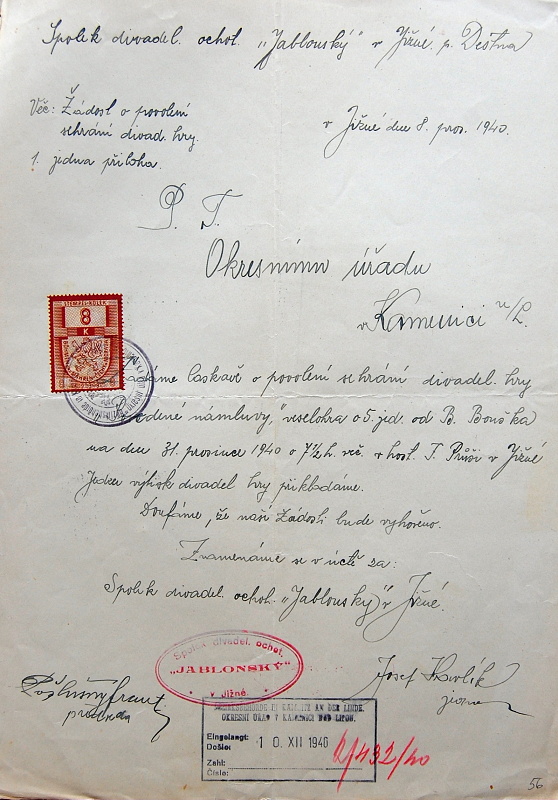 Spolek divadel. ochot. „Jablonský" v Jižné. p. Deštná
Věc: Žádost o povolení
sehrání divad. hry.
1. jedna příloha.
v Jižné dne 8. pros. 1940.
P. T.
Okresnímu úřadu
v Kamenici n/L.
STEMPEL-KOLEK
8
K
žádáme laskavě o povolení sehrání divadel. hry
námluvy," veselohra o 5. jed. od B. Bouška
na den 31. prosince 1940 o 7½ h. več. v host. T. Průši v Jižné
Jeden výtisk divadel. hry přikládáme.
Doufáme, že naší žádosti bude vyhověno.
Znamenáme se v úctě za:
Spolek divadel. ochot. „Jablonský" v Jižné.
Spolek divadel. ochot.
„JABLONSKÝ"
v Jižné.
Josef Havlík
jednatel
předseda
BEZIRKSBEHÖRDE IN KAMENITZ AN DER LINDE.
OKRESNÍ ÚŘAD V KAMENICI NAD LIPOU.
Eingelangt:
Došlo:
10. XII 1940
Zahl:
Číslo:
2/432/40
56